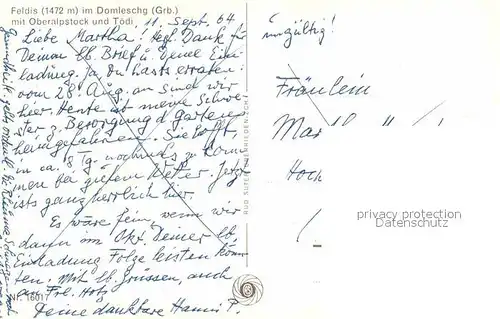 Feldis (1472 m) im Domleschg (Grb.)
mit Oberalpstock und Tödi
11. Sept. 64
Liebe Martha! Hegl. Dank für
Deinen lb. Brief u. Deine Ein-
ladung. Ja, Du hasts erraten:
vom 28. Aug. an sind wir
hier. Heute ist meine Schwe-
ster z. Besorgung d. Gartens
heimgefahren. Sie hofft,
in ca. 8 Tg. nochmals zu kom-
men bei gutem Wetter. Jetzt
ists ganz herrlich hier.
Es wäre fein, wenn wir
dann im Okt. Deiner lb.
Einladung Folge leisten könn-
ten. Mit lb. Grüssen, auch
an Frl. Hotz
Deine dankbare Hanni P.
Nr. 16017
ungültig!
Fräulein
Mar
Hoch
privacy protection
Datenschutz